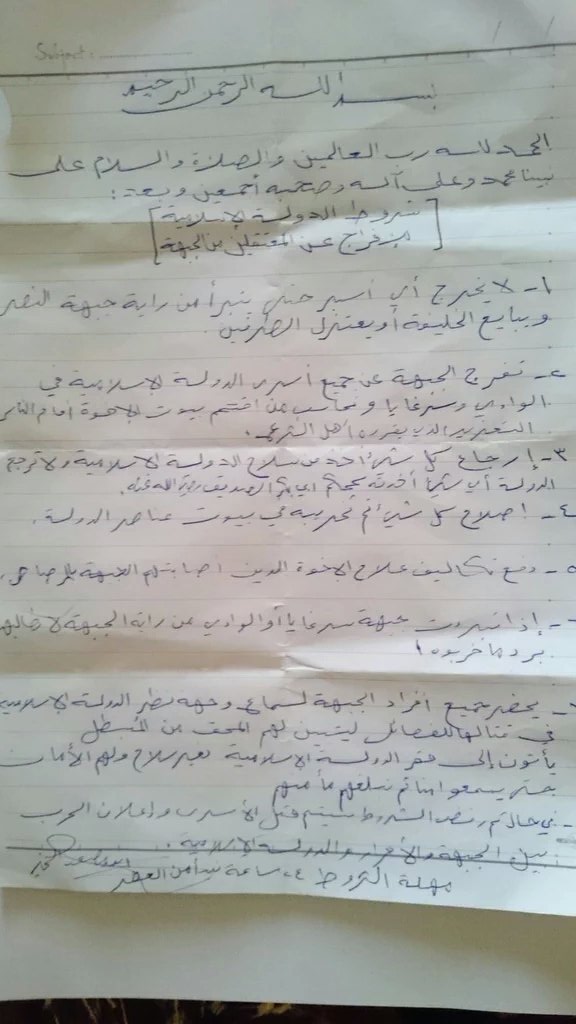 Subject:
بسم الله الرحمن الرحيم
الحمد لله رب العالمين والصلاة والسلام على
نبينا محمد وعلى آله وصحبه أجمعين وبعد:
[شروط الدولة الإسلامية
للإفراج عن المعتقلين من الجبهة]
١- لا يخرج أي أسير حتى يتبرأ من راية جبهة النصر
ويبايع الخليفة أو يعتزل الطرفين
٢- تفرج الجبهة عن جميع أسرى الدولة الإسلامية في
الوادي وسرغايا ونحاسب من اقتحم بيوت الإخوة أمام الناس
التعزير الذي يقرره أهل الشرع.
٣- إرجاع كل شيء أخذ من سلاح الدولة الإسلامية ولا ترجع
الدولة أي شيء أخذته كحكم أبي بكر الصديق رضي الله عنه.
٤- اصلاح كل شيء تم تخريبه في بيوت عناصر الدولة.
٥- دفع تكاليف علاج الإخوة الذين أصابتهم الجبهة بالرصاص.
- إذا تبرأت جبهة سرغايا أو الوادي عن راية الجبهة لا نطالبها
برد ما خربوه!
- يحضر جميع أفراد الجبهة لسماع وجهة نظر الدولة الإسلامية
في قتالها للفصائل ليتبين لهم المحق من المبطل
يأتون إلى مقر الدولة الإسلامية بغير سلاح ولهم الأمان
حتى يسمعوا منا ثم نبلغهم مأمنهم
- في حال تم رفض الشروط سيتم قتل الأسرى وإعلان الحرب
بين الجبهة والأحرار والدولة الإسلامية.
مهلة الشروط ٢٤ ساعة تبدأ من العصر